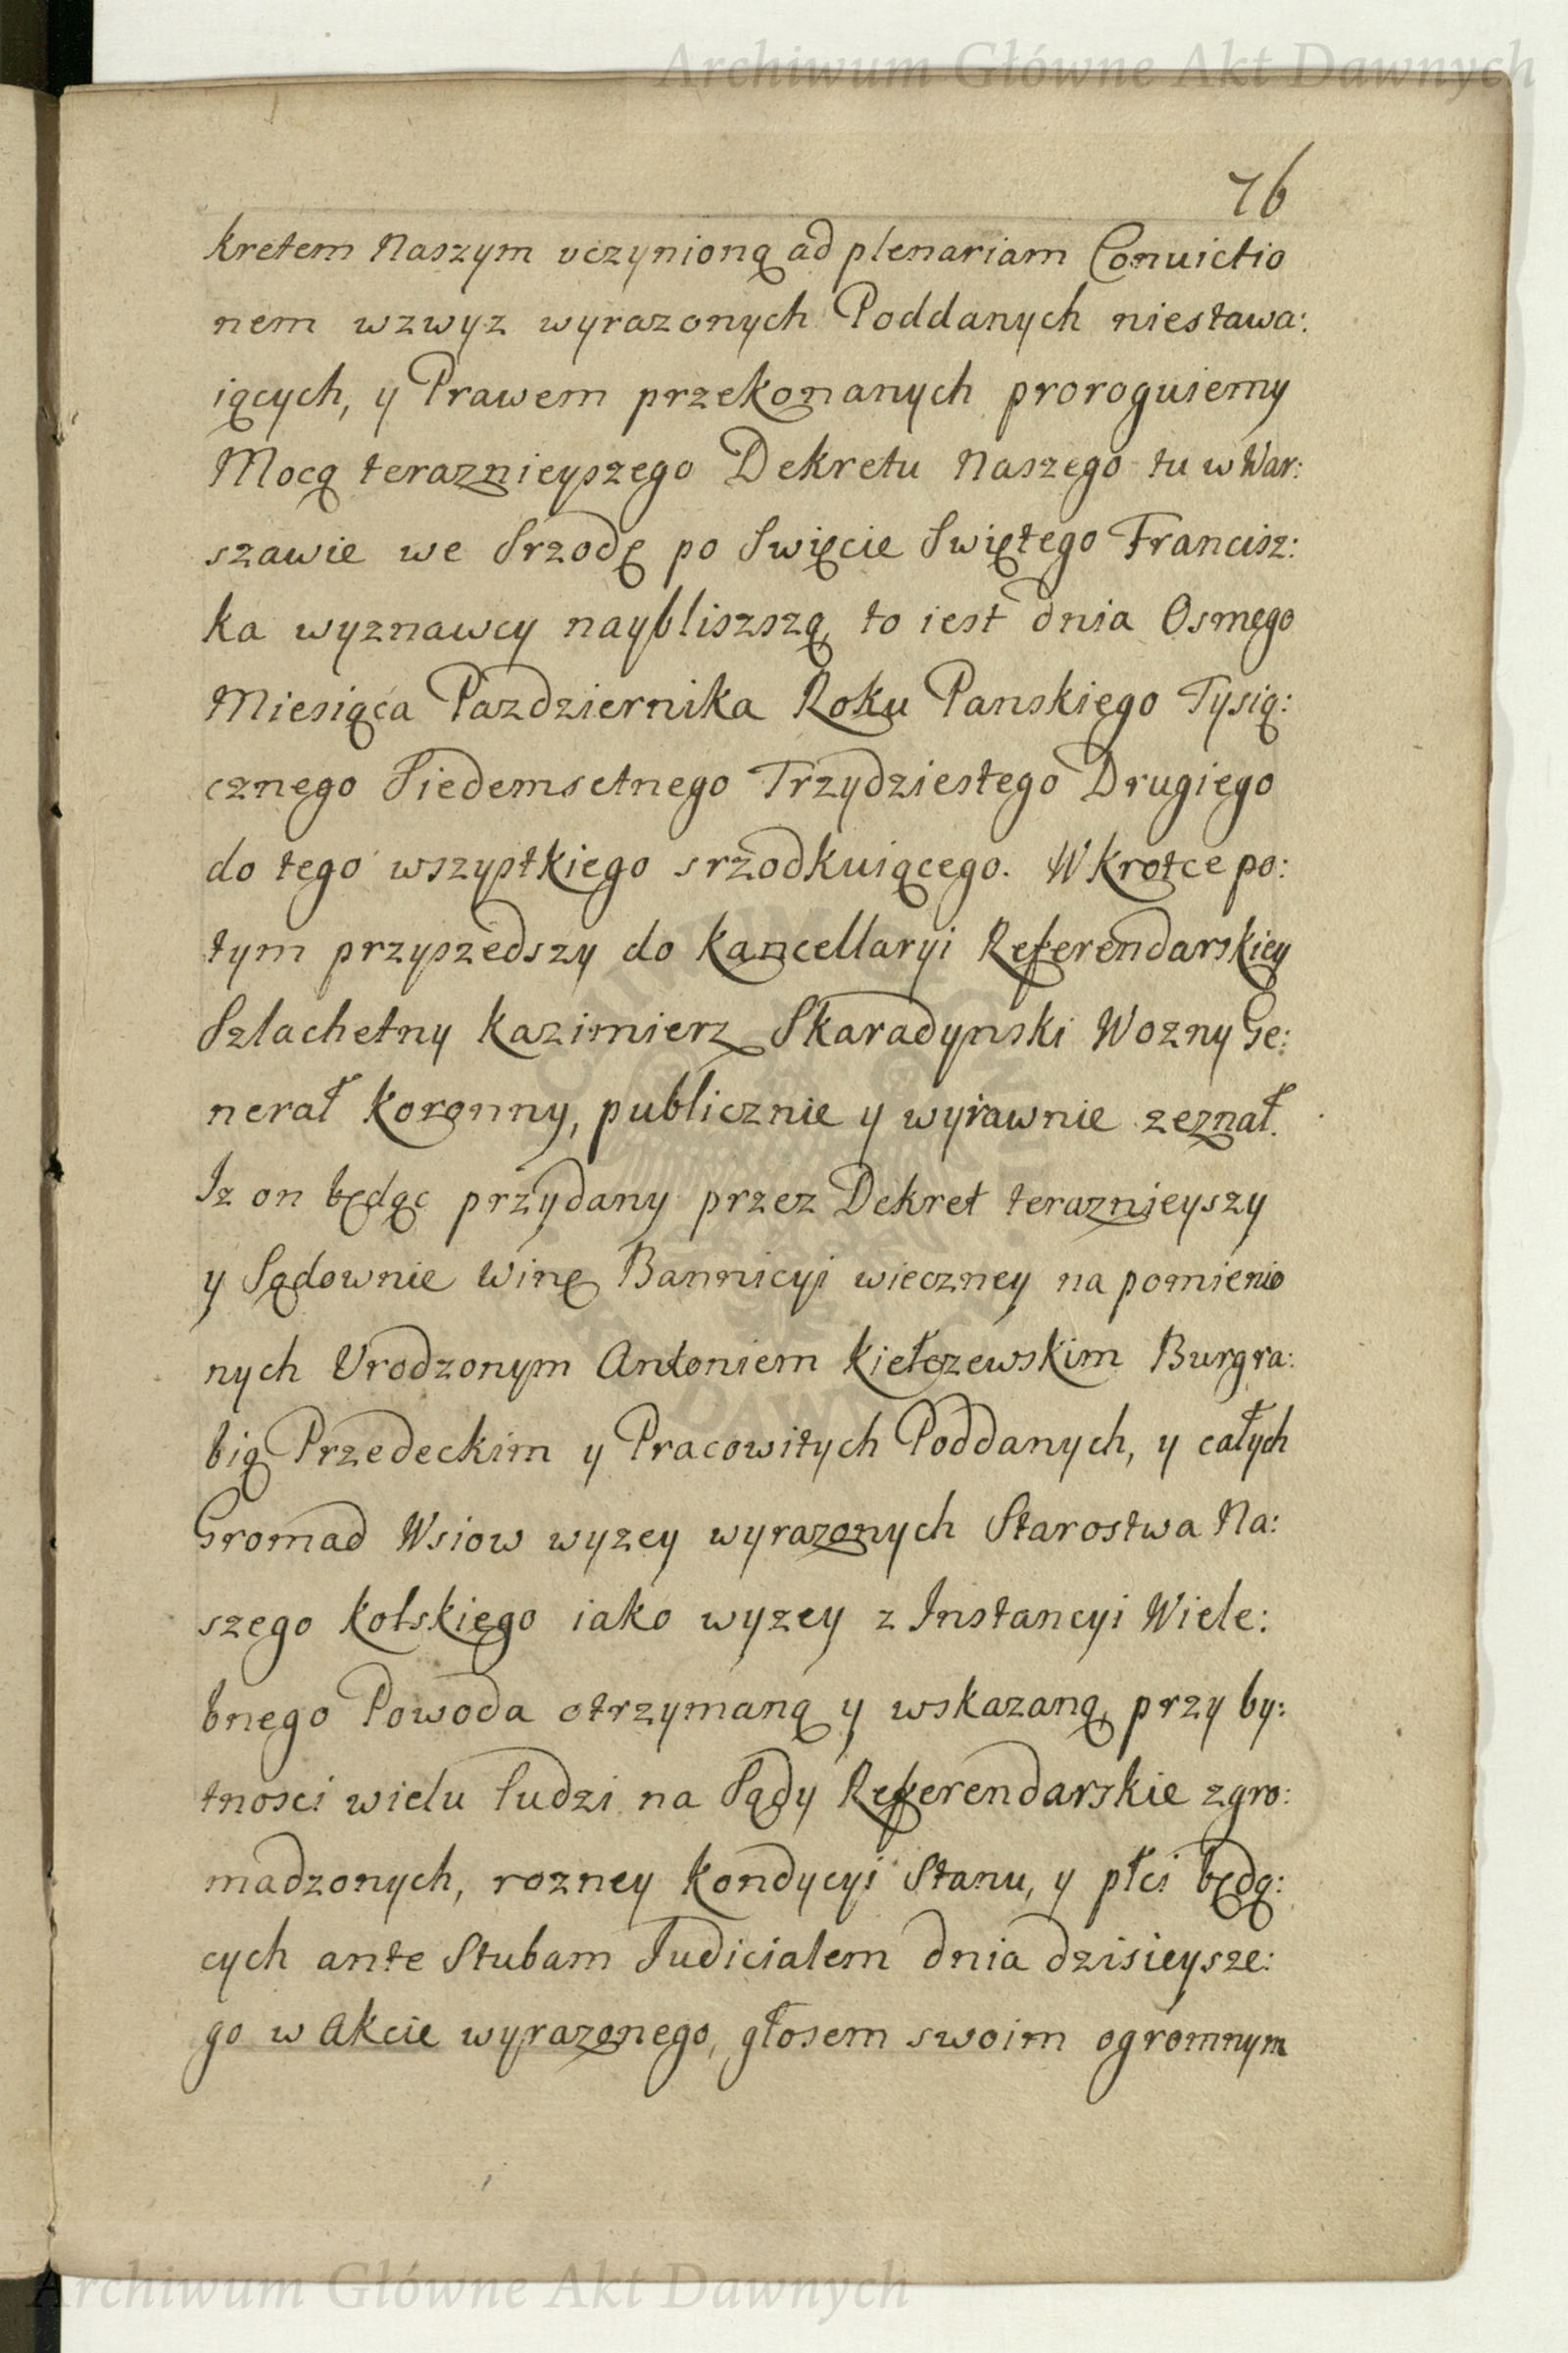 Archiwum Główne Akt Dawnych
76
kretem Naszym uczynioną ad plenariam Convictio
nem wzwyz wyrazonych Poddanych niestawa:
iących, y Prawem przekonanych proroguiemy
Mocą teraznieyszego Dekretu Naszego tu w War:
szawie we Srzodę po Swięcie Swiętego Francisz:
ka wyznawcy naybliszszą, to iest dnia Osmego
Miesiąca Pazdziernika Roku Panskiego Tysią:
cznego Siedemsetnego Trzydziestego Drugiego
do tego wszystkiego srzodkuiącego. Wkrotce po:
tym przyszedszy do Kancellaryi Referendarskiey
Szlachetny Kazimierz Skaradynski Wozny Ge:
nerał Koronny, publicznie y wyrawnie zeznał.
Iz on będąc przydany przez Dekret teraznieyszy
y Sądownie Winę Bannicyi wieczney na pomienio
nych Urodzonym Antoniem Kiełczewskim Burgra:
bią Przedeckim y Pracowitych Poddanych, y całych
Gromad Wsiow wyzey wyrazonych Starostwa Na:
szego Kolskiego iako wyzey z Instancyi Wiele:
bnego Powoda otrzymaną y wskazaną, przy by:
tnosci wielu ludzi na Sądy Referendarskie zgro:
madzonych, rozney Kondycyi Stanu, y płci będą:
cych ante Stubam Judicialem dnia dzisieysze:
go w Akcie wyrazonego, głosem swoim ogromnym
Archiwum Główne Akt Dawnych